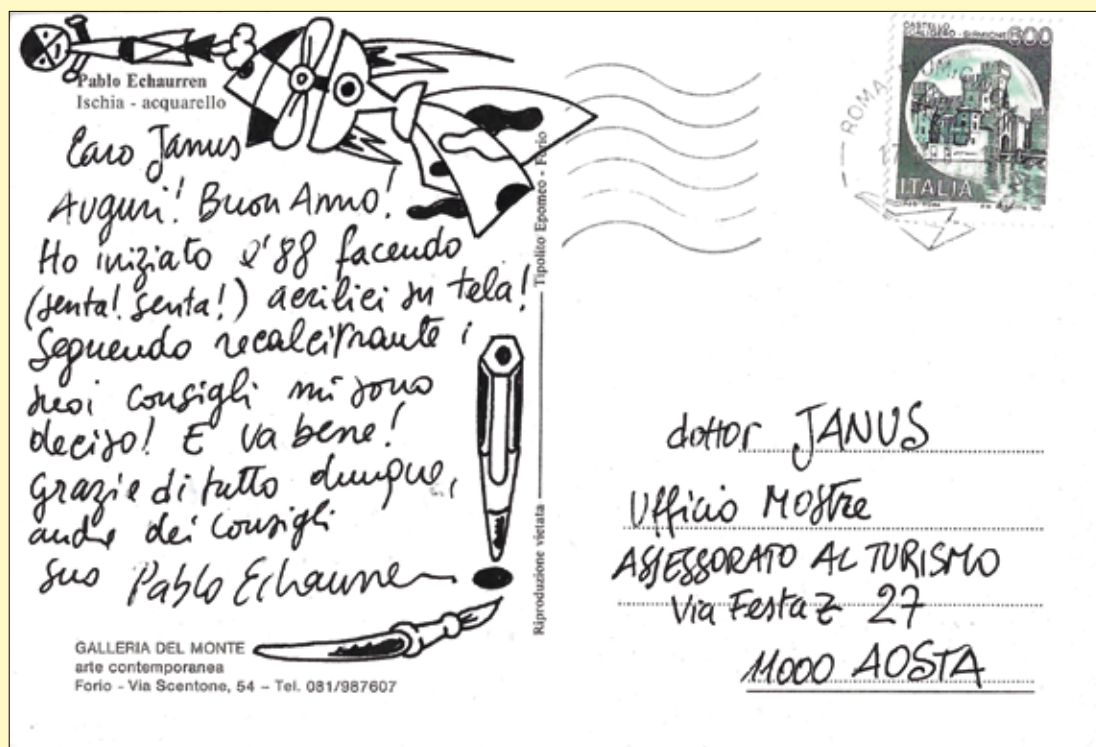 Pablo Echaurren
Ischia - acquarello
Caro Janus
Auguri! Buon Anno!
Ho iniziato l'88 facendo
(senta! senta!) acrilici su tela!
Seguendo recalcitrante i
suoi consigli mi sono
deciso! E va bene!
Grazie di tutto dunque,
anche dei consigli
suo Pablo Echaurren
GALLERIA DEL MONTE
arte contemporanea
Forio - Via Scentone, 54 – Tel. 081/987607
Riproduzione vietata — Tipolito Epomeo - Forio
ROMA
CASTELLO
SCALIGERO - SIRMIONE 600
ITALIA
dottor JANUS
Ufficio Mostre
ASSESSORATO AL TURISMO
Via Festaz 27
11000 AOSTA